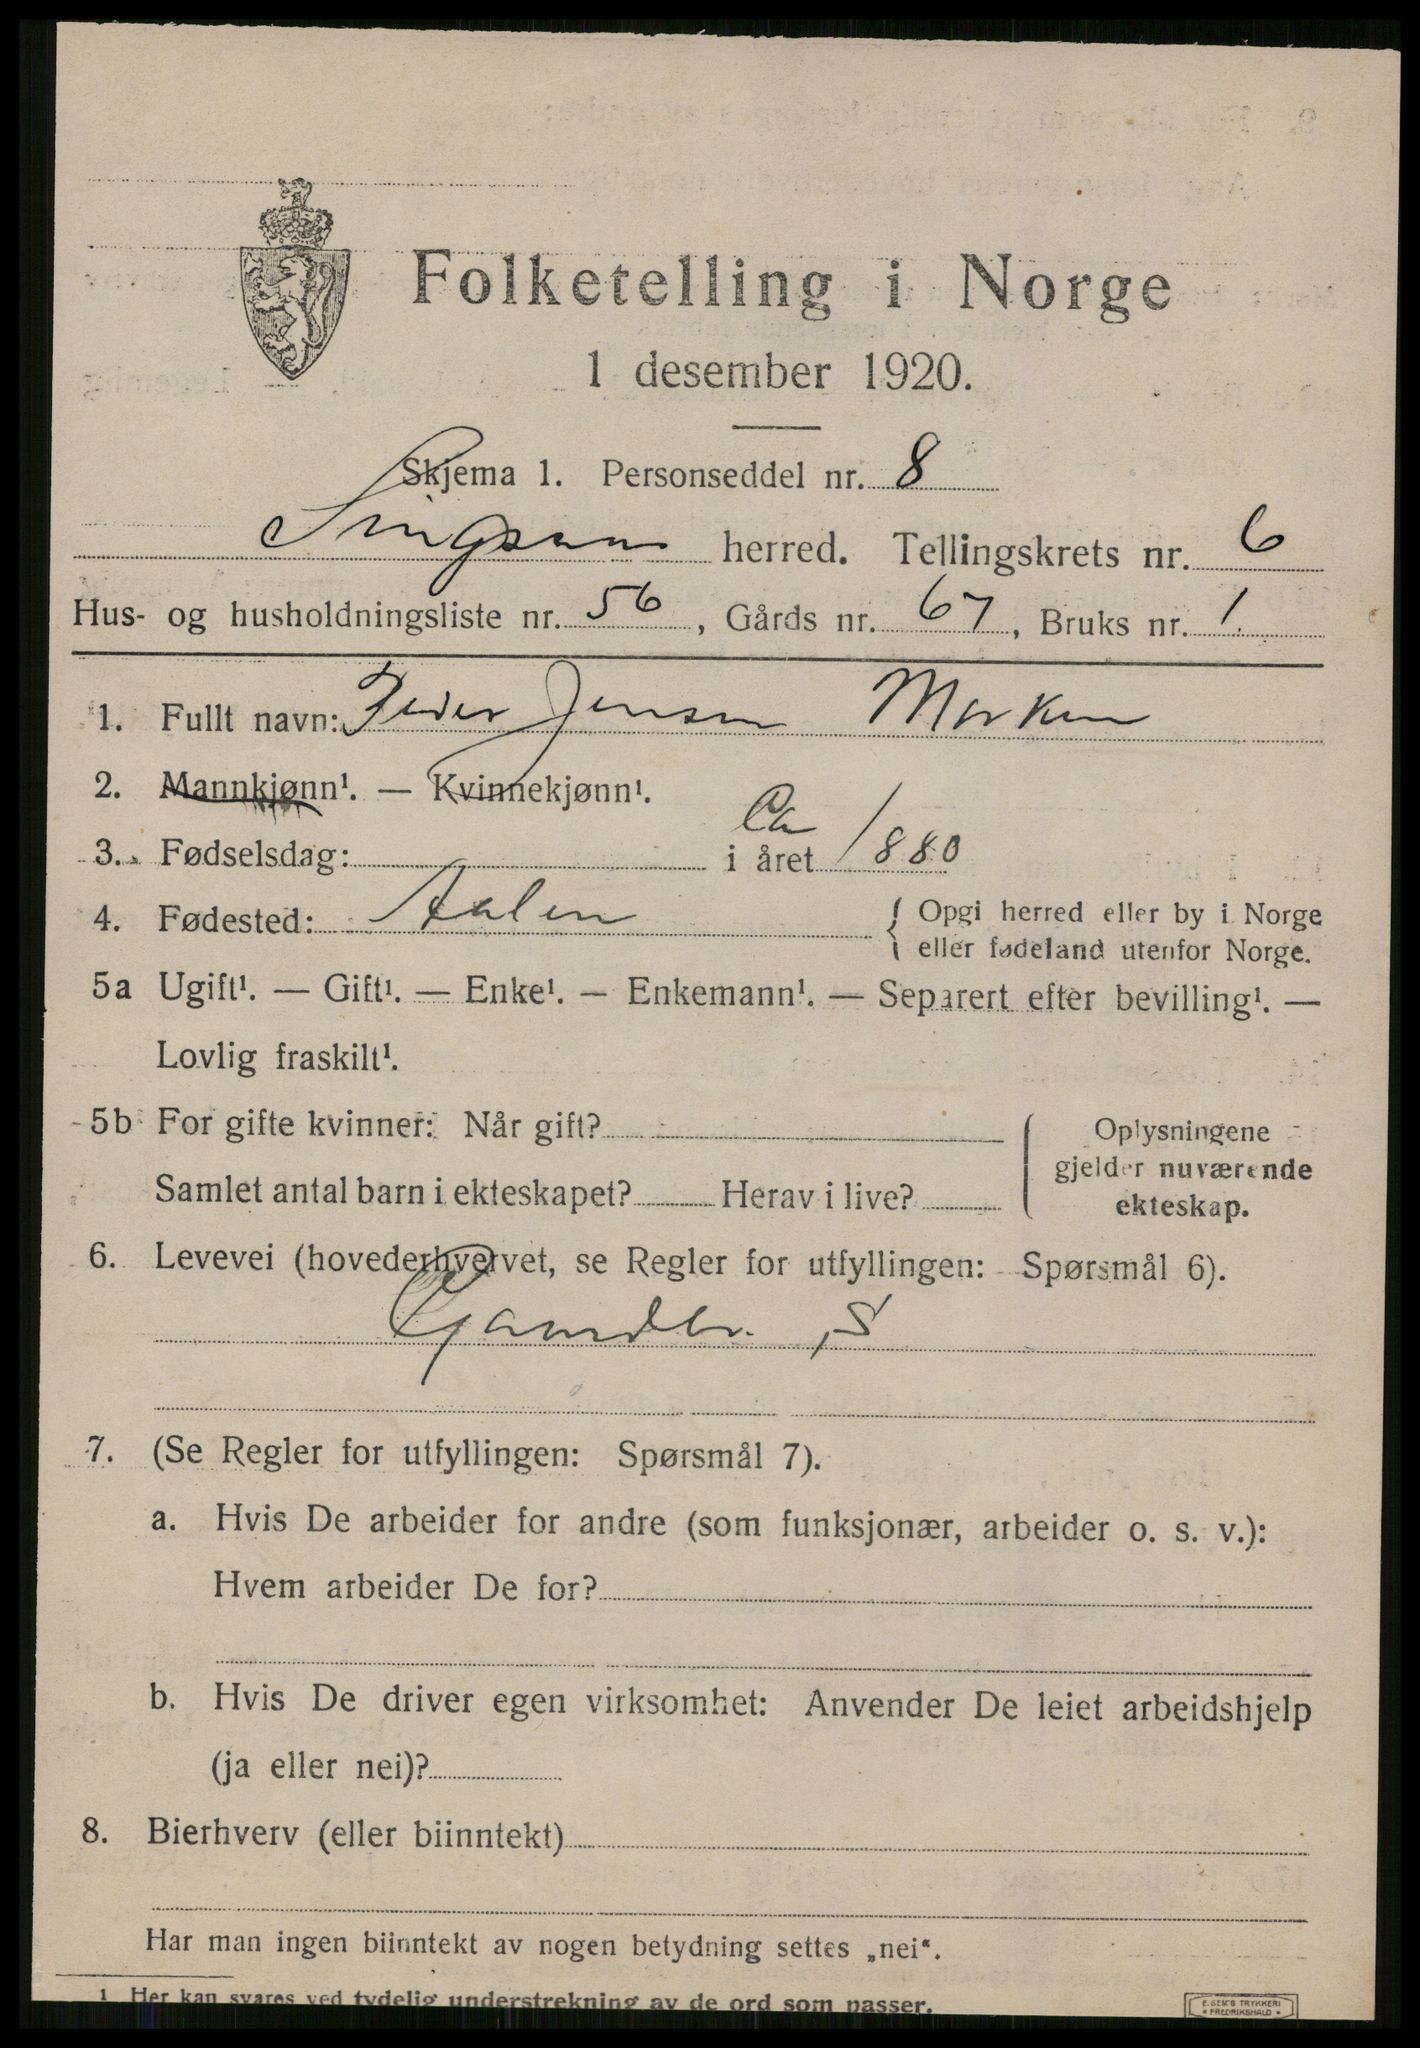 Folketelling i Norge
1 desember 1920.
Skjema 1. Personseddel nr. 8
Singsaas herred. Tellingskrets nr. 6
Hus- og husholdningsliste nr. 56, Gårds nr. 67, Bruks nr. 1.
1. Fullt navn: Peder Jensen Morken
2. Mannkjønn¹. — Kvinnekjønn¹.
Ca
3. Fødselsdag: i året 1880
4. Fødested: Aalen { Opgi herred eller by i Norge
eller fødeland utenfor Norge.
5a Ugift¹. — Gift¹. — Enke¹. — Enkemann¹. — Separert efter bevilling¹. —
Lovlig fraskilt¹.
5b For gifte kvinner: Når gift? Oplysningene
gjelder nuværende
Samlet antal barn i ekteskapet? Herav i live? ekteskap.
6. Levevei (hovederhvervet, se Regler for utfyllingen: Spørsmål 6).
, S
7. (Se Regler for utfyllingen: Spørsmål 7).
a. Hvis De arbeider for andre (som funksjonær, arbeider o. s. v.):
Hvem arbeider De for?
b. Hvis De driver egen virksomhet: Anvender De leiet arbeidshjelp
(ja eller nei)?
8. Bierhverv (eller biinntekt)
Har man ingen biinntekt av nogen betydning settes „nei“.
1 Her kan svares ved tydelig understrekning av de ord som passer.
E. SEM'S TRYKKERI
• FREDRIKSHALD •